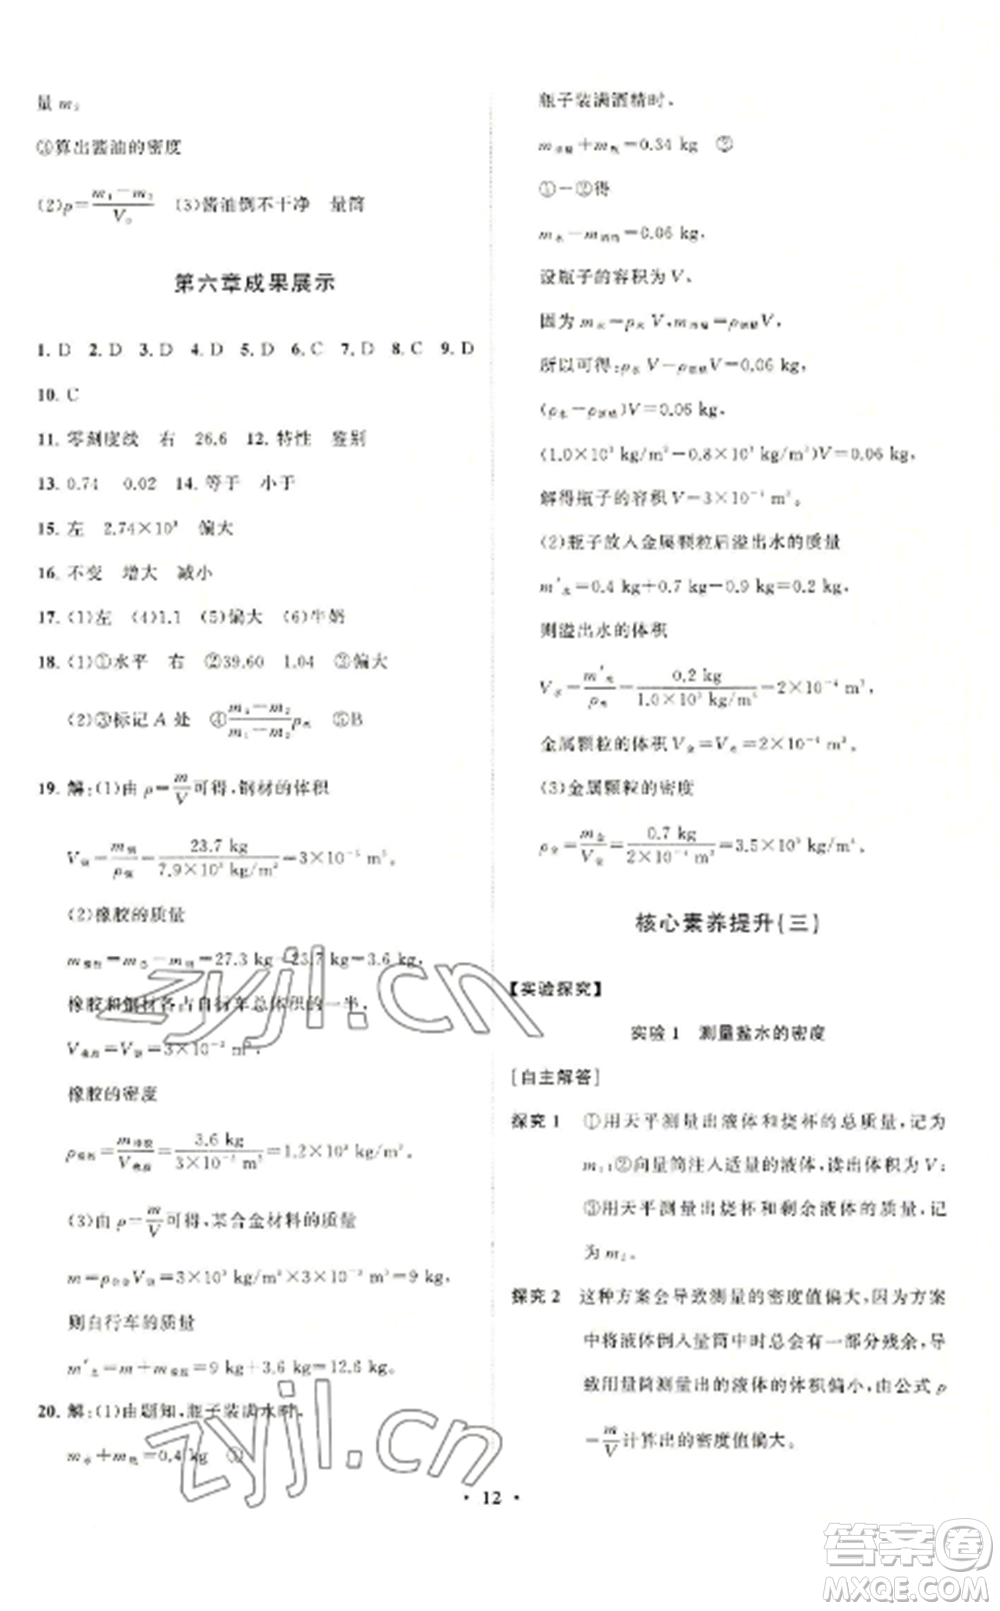 量 m₂
③算出酱油的密度
(2)ρ=(m₁−m₂)/V₀ (3)酱油倒不干净 量筒
第六章成果展示
1. D 2. D 3. D 4. D 5. D 6. C 7. D 8. C 9. D
10. C
11. 零刻度线 右 26.6 12. 特性 鉴别
13. 0.74 0.02 14. 等于 小于
15. 左 2.74×10³ 偏大
16. 不变 增大 减小
17. (1)左 (4)1.1 (5)偏大 (6)牛奶
18. (1)①水平 右 ②39.60 1.04 ③偏大
(2)③标记 A 处 ④(m₄−m₂)/(m₁−m₂)ρ水 ⑤B
19. 解:(1)由 ρ=m/V可得,钢材的体积
V钢=m钢/ρ钢=23.7 kg/(7.9×10³ kg/m³)=3×10⁻³ m³。
(2)橡胶的质量
m橡胶=m总−m钢=27.3 kg−23.7 kg=3.6 kg,
橡胶和钢材各占自行车总体积的一半,
V橡胶=V钢=3×10⁻³ m³,
橡胶的密度
ρ橡胶=m橡胶/V橡胶=3.6 kg/(3×10⁻³ m³)=1.2×10³ kg/m³。
(3)由 ρ=m/V可得,某合金材料的质量
m=ρ合金V钢=3×10³ kg/m³×3×10⁻³ m³=9 kg,
则自行车的质量
m′总=m+m橡胶=9 kg+3.6 kg=12.6 kg。
20. 解:(1)由题知,瓶子装满水时,
m水+m瓶=0.4 kg ①
瓶子装满酒精时、
m酒精+m瓶=0.34 kg ②
①−②得
m水−m酒精=0.06 kg,
设瓶子的容积为 V、
因为 m水=ρ水V,m酒精=ρ酒精V,
所以可得:ρ水V−ρ酒精V=0.06 kg,
(ρ水−ρ酒精)V=0.06 kg,
(1.0×10³ kg/m³−0.8×10³ kg/m³)V=0.06 kg,
解得瓶子的容积 V=3×10⁻⁴ m³。
(2)瓶子放入金属颗粒后溢出水的质量
m′水=0.4 kg+0.7 kg−0.9 kg=0.2 kg,
则溢出水的体积
V水=m′水/ρ水=0.2 kg/(1.0×10³ kg/m³)=2×10⁻⁴ m³,
金属颗粒的体积 V金=V水=2×10⁻⁴ m³。
(3)金属颗粒的密度
ρ金=m金/V金=0.7 kg/(2×10⁻⁴ m³)=3.5×10³ kg/m³。
核心素养提升(三)
【实验探究】
实验 1 测量盐水的密度
[自主解答]
探究 1 ①用天平测量出液体和烧杯的总质量,记为
m₁;②向量筒注入适量的液体,读出体积为 V;
③用天平测量出烧杯和剩余液体的质量,记
为 m₂。
探究 2 这种方案会导致测量的密度值偏大,因为方案
中将液体倒入量筒中时总会有一部分残余,导
致用量筒测量出的液体的体积偏小,由公式 ρ
=m/V计算出的密度值偏大。
· 12 ·
zyjl.cn
zyjl.cn
答案圈
MXQE.COM